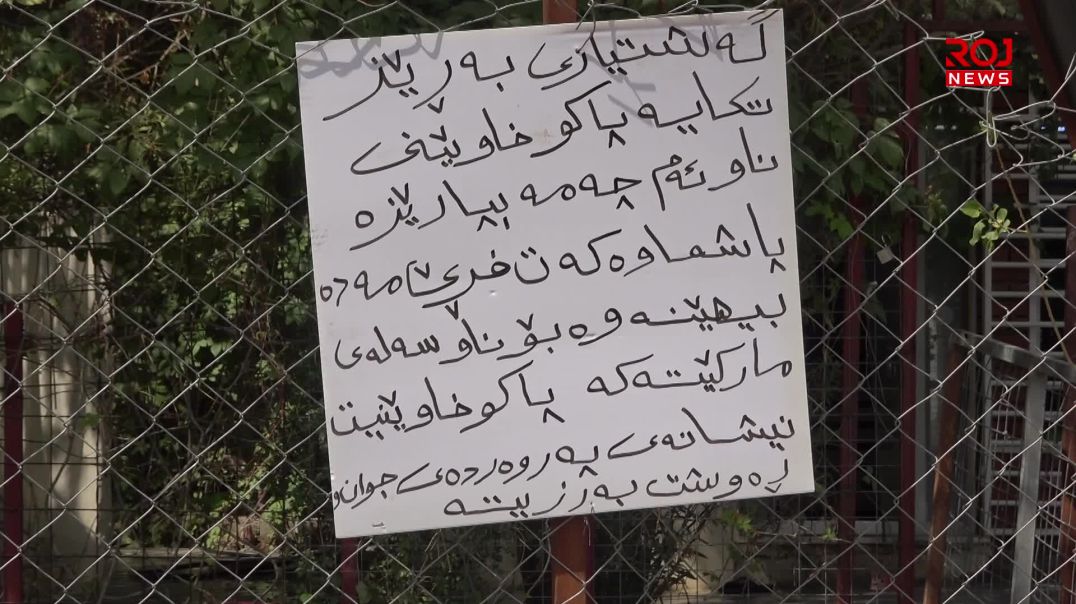 گەشتیاری بەڕێز
تکایە پاکو خاوێنی
ناو ئەم چەمە بپارێزە
پاشماوەکەت فرێ مەدە
بیهێنەوە بۆ ناو سەلەی
مارکێتەکە پاکو خاوێنیت
نیشانەی پەروەردەی جوان و
ڕەوشت بەرزیتە
ROJ
NEWS